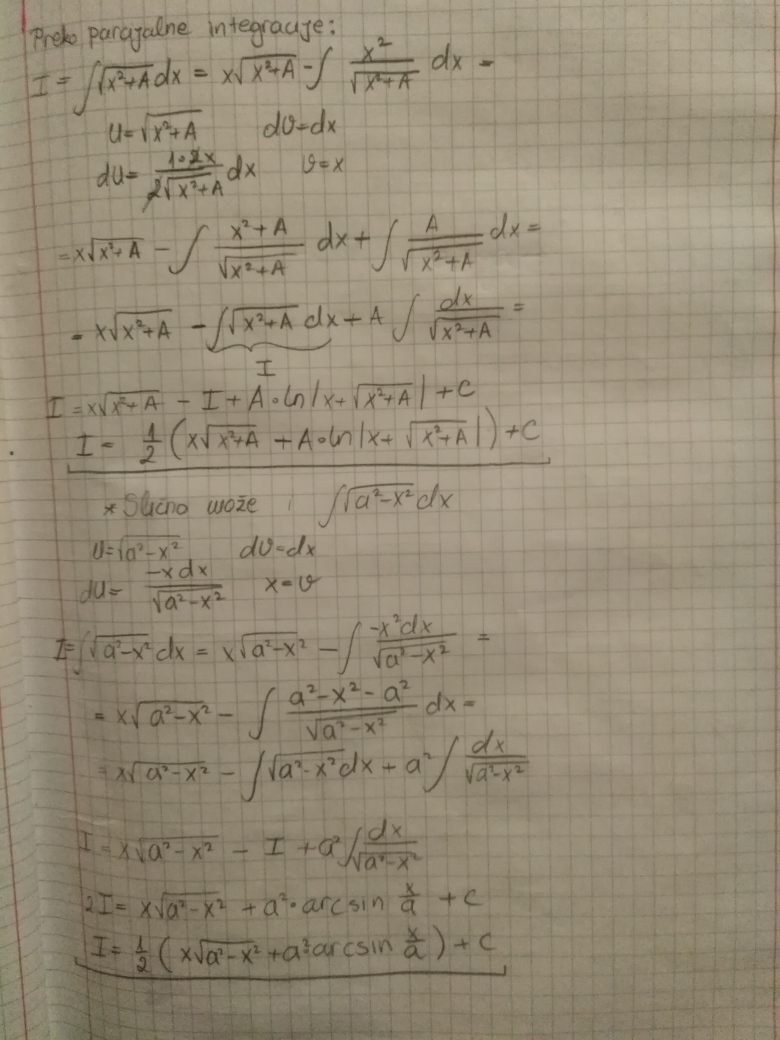 Preko parcijalne integracije:
I = ∫√(x²+A) dx = x√(x²+A) - ∫ x²/√(x²+A) dx =
u=√(x²+A) dv=dx
du= 1·2x/2√(x²+A) dx v=x
= x√(x²+A) - ∫ (x²+A)/√(x²+A) dx + ∫ A/√(x²+A) dx =
= x√(x²+A) - ∫√(x²+A) dx + A ∫ dx/√(x²+A) =
I
I = x√(x²+A) - I + A·ln|x+√(x²+A)| + C
I = 1/2 (x√(x²+A) + A·ln|x+√(x²+A)|) + C
* Slično može i ∫√(a²-x²) dx
u=√(a²-x²) dv=dx
du= -x dx/√(a²-x²) x=v
I=∫√(a²-x²) dx = x√(a²-x²) - ∫ -x²dx/√(a²-x²) =
= x√(a²-x²) - ∫ (a²-x²-a²)/√(a²-x²) dx =
= x√(a²-x²) - ∫√(a²-x²) dx + a² ∫ dx/√(a²-x²)
I = x√(a²-x²) - I + a² ∫ dx/√(a²-x²)
2I = x√(a²-x²) + a²·arcsin x/a + C
I = 1/2 (x√(a²-x²) + a² arcsin x/a) + C